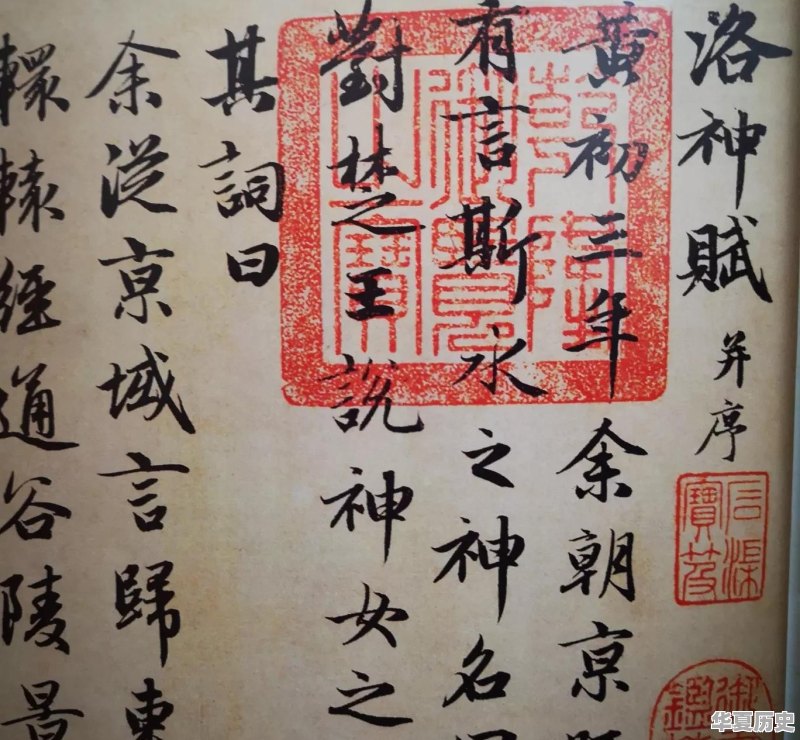 洛神賦并序
黄初三年余朝京
有言斯水之神名
對楚王說神女之
其詞曰
余從京域言歸東
轘轅經通谷陵景
乾隆御覽之寶
石渠寶笈
华夏历史